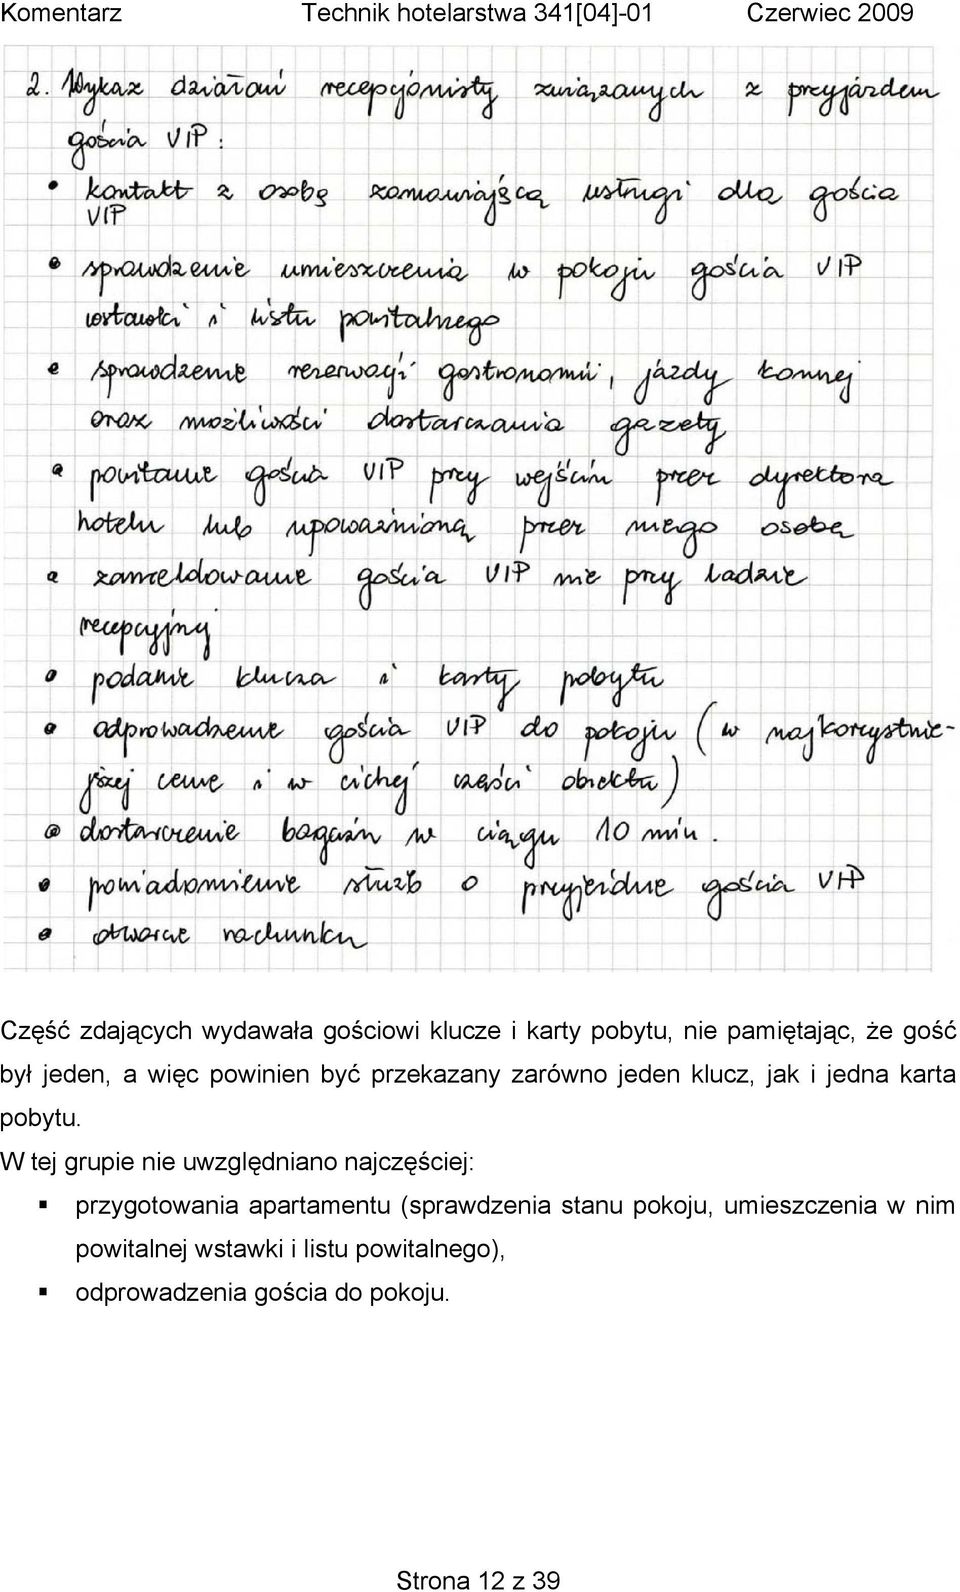 Komentarz Technik hotelarstwa 341[04]-01 Czerwiec 2009
2. Wykaz działań recepcjonisty związanych z przyjazdem
gościa VIP :
• kontakt z osobą zamawiającą usługi dla gościa
VIP
• sprawdzenie umieszczenia w pokoju gościa VIP
wstawki i listu powitalnego
• sprawdzenie rezerwacji gastronomii, jazdy konnej
oraz możliwości dostarczania gazety
• powitanie gościa VIP przy wejściu przez dyrektora
hotelu lub upoważnioną przez niego osobę
• zameldowanie gościa VIP nie przy ladzie
recepcyjnej
• podanie klucza i karty pobytu
• odprowadzenie gościa VIP do pokoju (w najkorzystnie-
jszej cenie i w cichej części obiektu)
• dostarczenie bagażu w ciągu 10 min.
• powiadomienie służb o przyjeździe gościa VIP
• otwarcie rachunku
Część zdających wydawała gościowi klucze i karty pobytu, nie pamiętając, że gość
był jeden, a więc powinien być przekazany zarówno jeden klucz, jak i jedna karta
pobytu.
W tej grupie nie uwzględniano najczęściej:
▪ przygotowania apartamentu (sprawdzenia stanu pokoju, umieszczenia w nim
powitalnej wstawki i listu powitalnego),
▪ odprowadzenia gościa do pokoju.
Strona 12 z 39